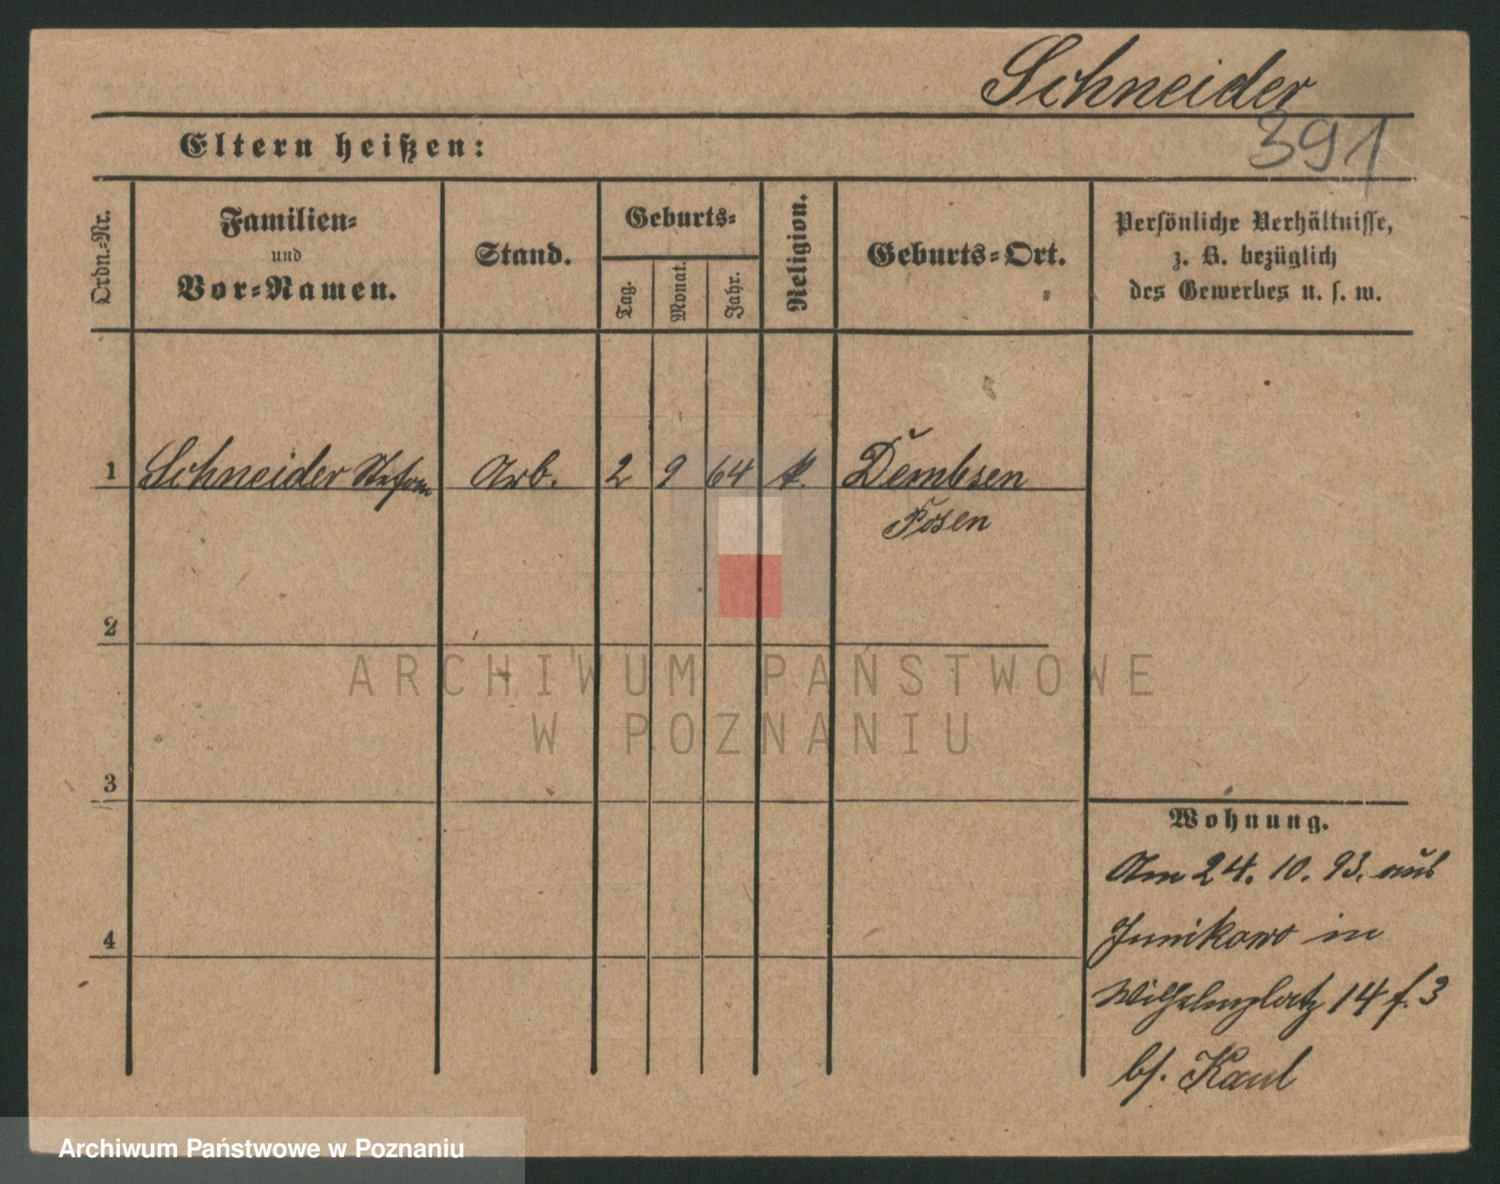 Schneider
391
Eltern heißen:
Ordn.-Nr.
Familien-
und
Vor-Namen.
Stand.
Geburts-
Tag.
Monat.
Jahr.
Religion.
Geburts-Ort.
Persönliche Verhältnisse,
z. B. bezüglich
des Gewerbes u. s. w.
1 Schneider Stefan Arb. 2 9 64 k. Dembsen
Posen
2
3
4
Wohnung.
Am 24. 10. 93. aus
Junikowo in
Wilhelmplatz 14 f. 3
bs. Kaul
ARCHIWUM PAŃSTWOWE
W POZNANIU
Archiwum Państwowe w Poznaniu